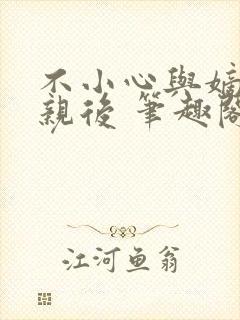 不小心與嫡
親後 筆趣閣
江河鱼翁